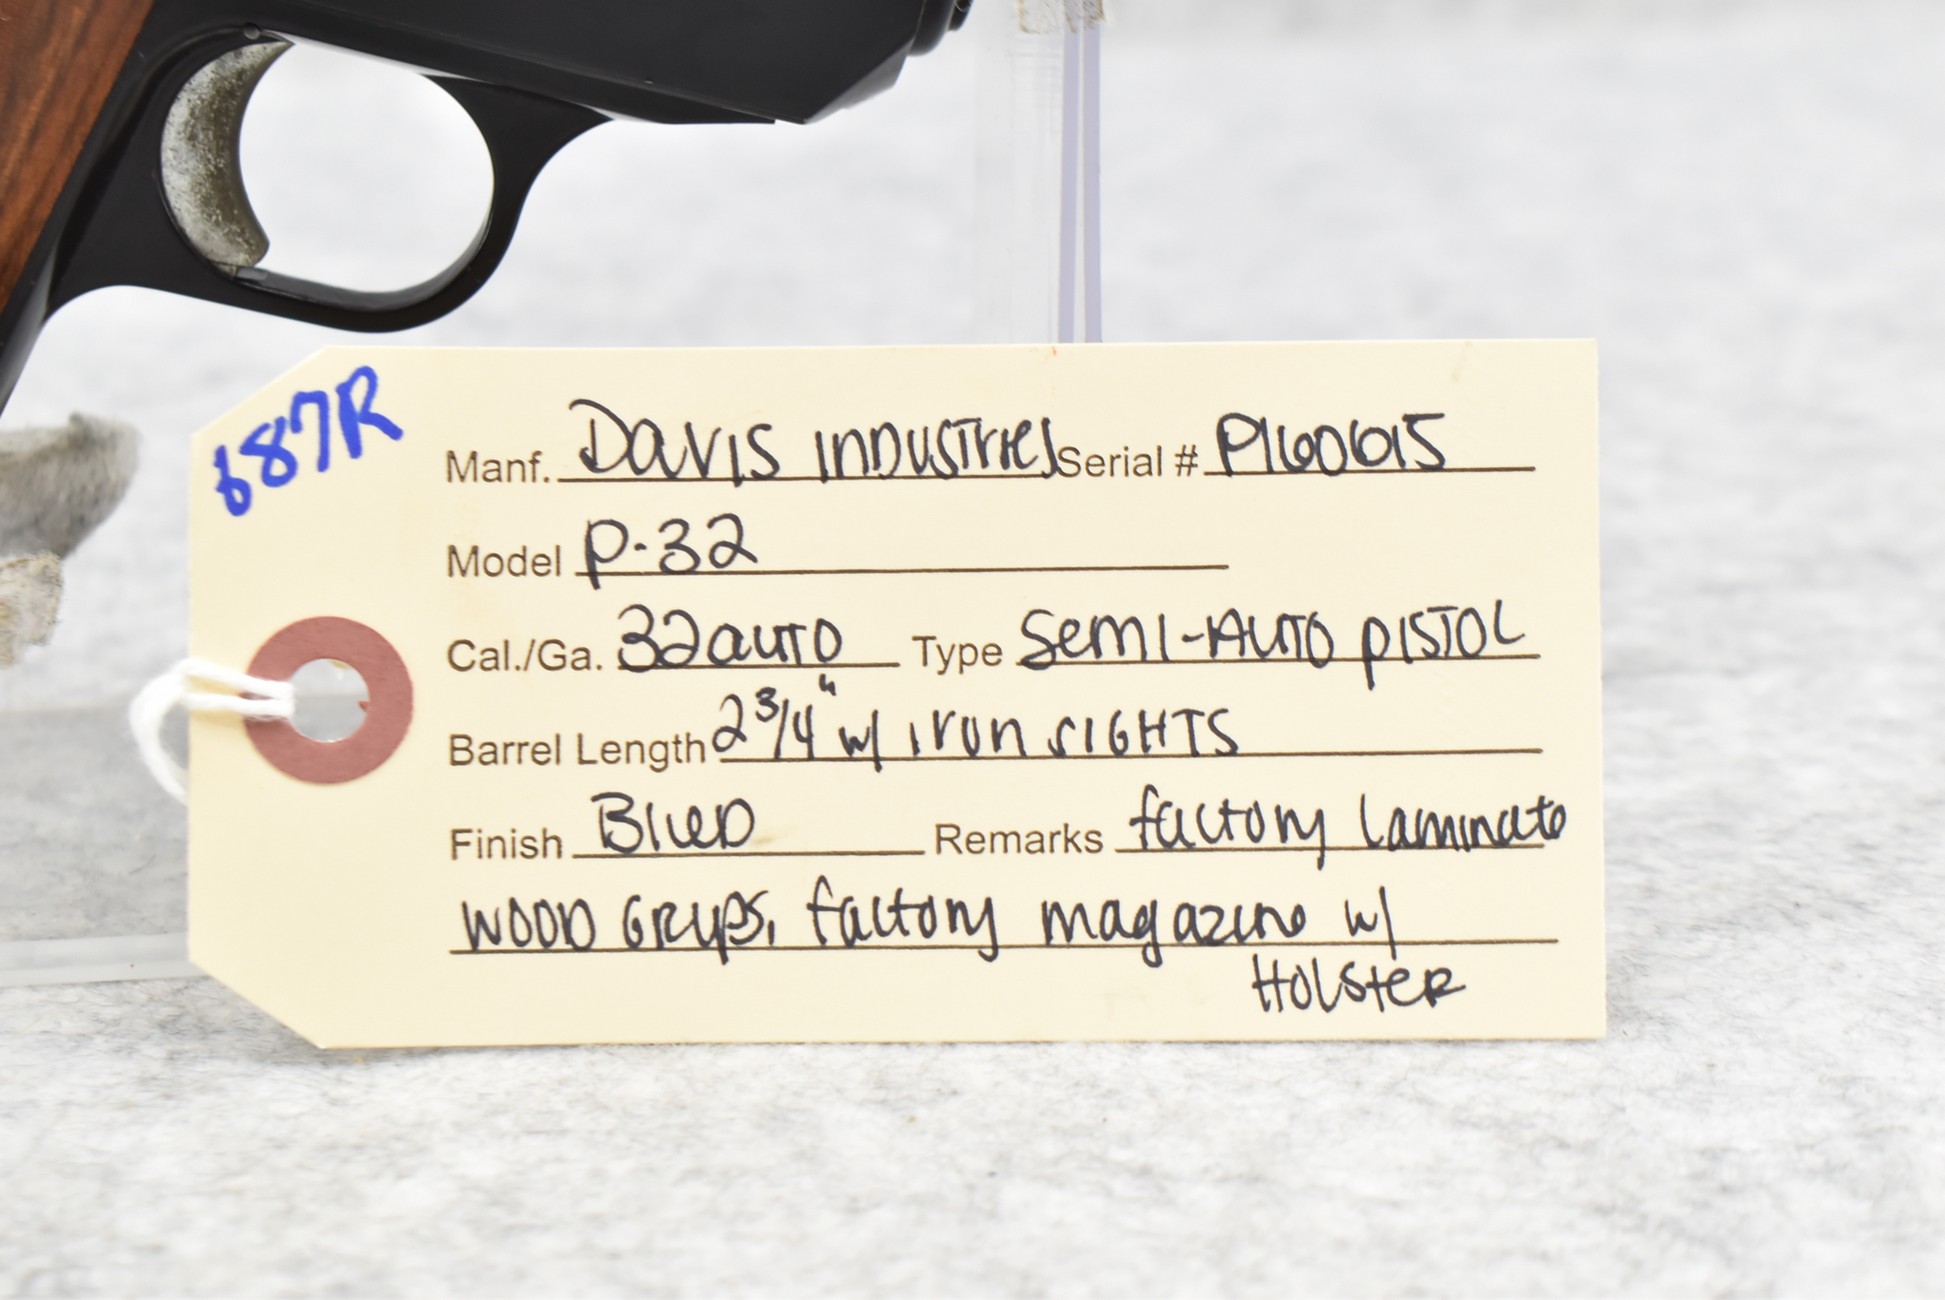 687R
Manf. Davis Industries Serial # P160615
Model P-32
Cal./Ga. 32 auto Type Semi-Auto Pistol
Barrel Length 2 3/4" w/ iron sights
Finish Blued Remarks factory laminate
wood grips, factory magazine w/
Holster